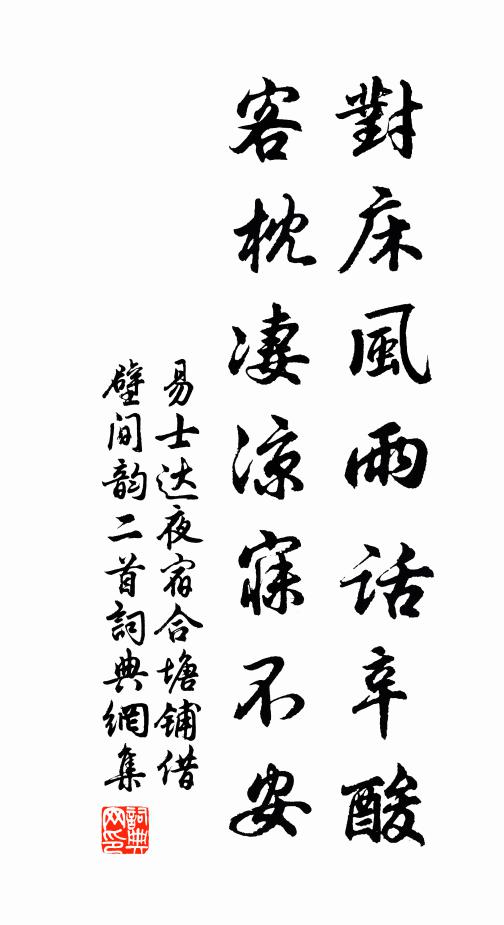 對床風雨話辛酸
客枕凄涼寐不安
易士达夜宿合塘铺借
壁间韵二首詞典網集
詞典
网印